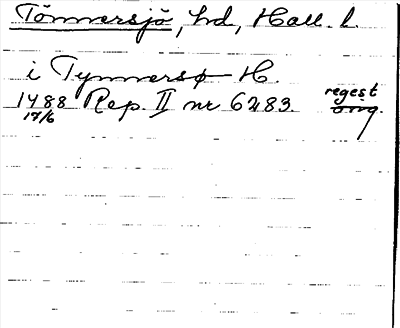 Tönnersjö, hd, Hall. l.
i Tynnersø H.
1488 Rep. II nr 6283. regest
17/6 orig.